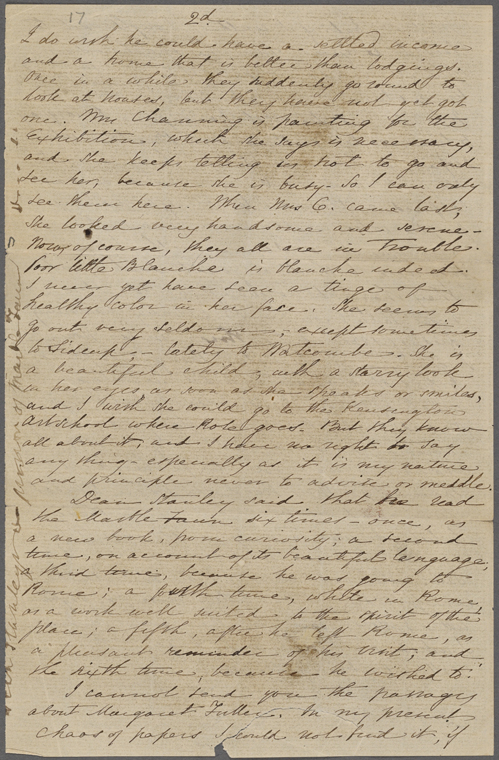 17
2d.
I do wish he could have a settled income
and a home that is better than lodgings.
Once in a while they suddenly go round to
look at houses, but they have not yet got
one. Mrs Channing is painting for the
Exhibition, which she says is necessary,
and she keeps telling us not to go and
see her, because she is busy. So I can only
see them here. When Mrs C. came last,
she looked very handsome and serene—
Now, of course, they all are in trouble.
Poor little Blanche is blanche indeed.
I never yet have seen a tinge of
healthy color in her face. She seems to
go out very seldom, except sometimes
to Sidcup,— lately to Watcombe. She is
a beautiful child, with a starry look
in her eyes, as soon as she speaks or smiles,
and I wish she could go to the Kensington
Art school where Rose goes. But they know
all about it, and I have no right to say
any thing— especially as it is my nature
and principle never to advise or meddle.
Dean Stanley said that he read
the Marble Faun six times— once, as
a new book, from curiosity; a second
time, on account of its beautiful language;
a third time, because he was going to
Rome; a fourth time, while in Rome,
as a work well suited to the spirit of the
place; a fifth, after he left Rome, as
a pleasant reminder of his visit; and
the sixth time, because he wished to.
I cannot send you the passages
about Margaret Fuller. In my present
chaos of papers I could not find it, if
Dean Stanley's of Marble Faun